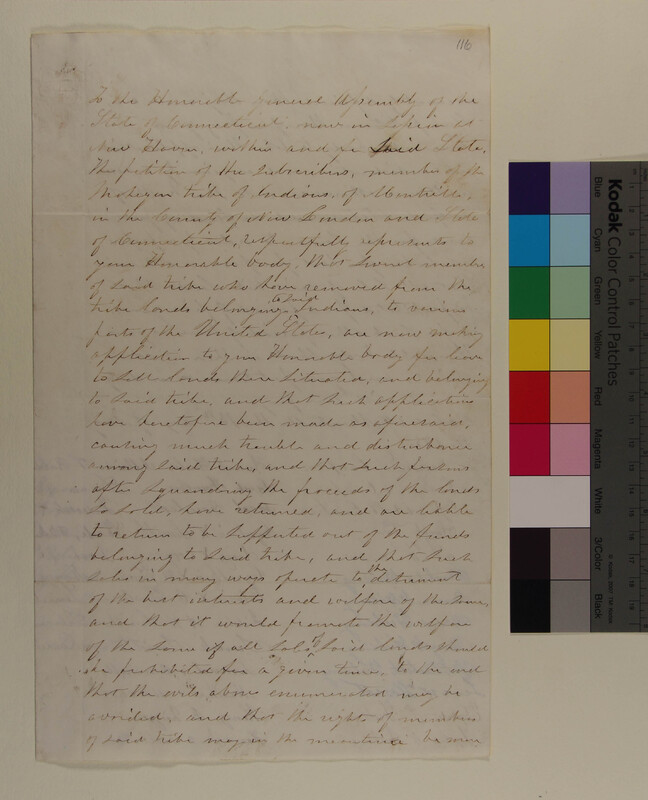 116
To the Honorable General Assembly of the
State of Connecticut, now in Session at
New Haven, within and for Said State,
The petition of the Subscribers, members of the
Mohegan tribe of Indians, of Montville,
in the County of New London and State
of Connecticut, respectfully represents to
your Honorable body, that Several members
of Said tribe who have removed from the
tribe lands belonging to Said Indians, to various
parts of the United States, are now making
application to your Honorable body for leave
to Sell lands there Situated, and belonging
to Said tribe, and that Such applications
have heretofore been made as aforesaid,
causing much trouble and disturbance
among Said tribe, and that Such persons
after Squandering the proceeds of the lands
So Sold, have returned, and are liable
to return to be Supported out of the funds
belonging to Said tribe, and that Such
Sales in many ways operate to the detriment
of the best interests and welfare of the Same,
and that it would promote the welfare
of the Same if all Sales of Said lands Should
be prohibited for a given time, to the end
that the evils above enumerated may be
avoided, and that the rights of members
of Said tribe may in the meantime be more
Kodak Color Control Patches
Blue
Cyan
Green
Yellow
Red
Magenta
White
3/Color
Black